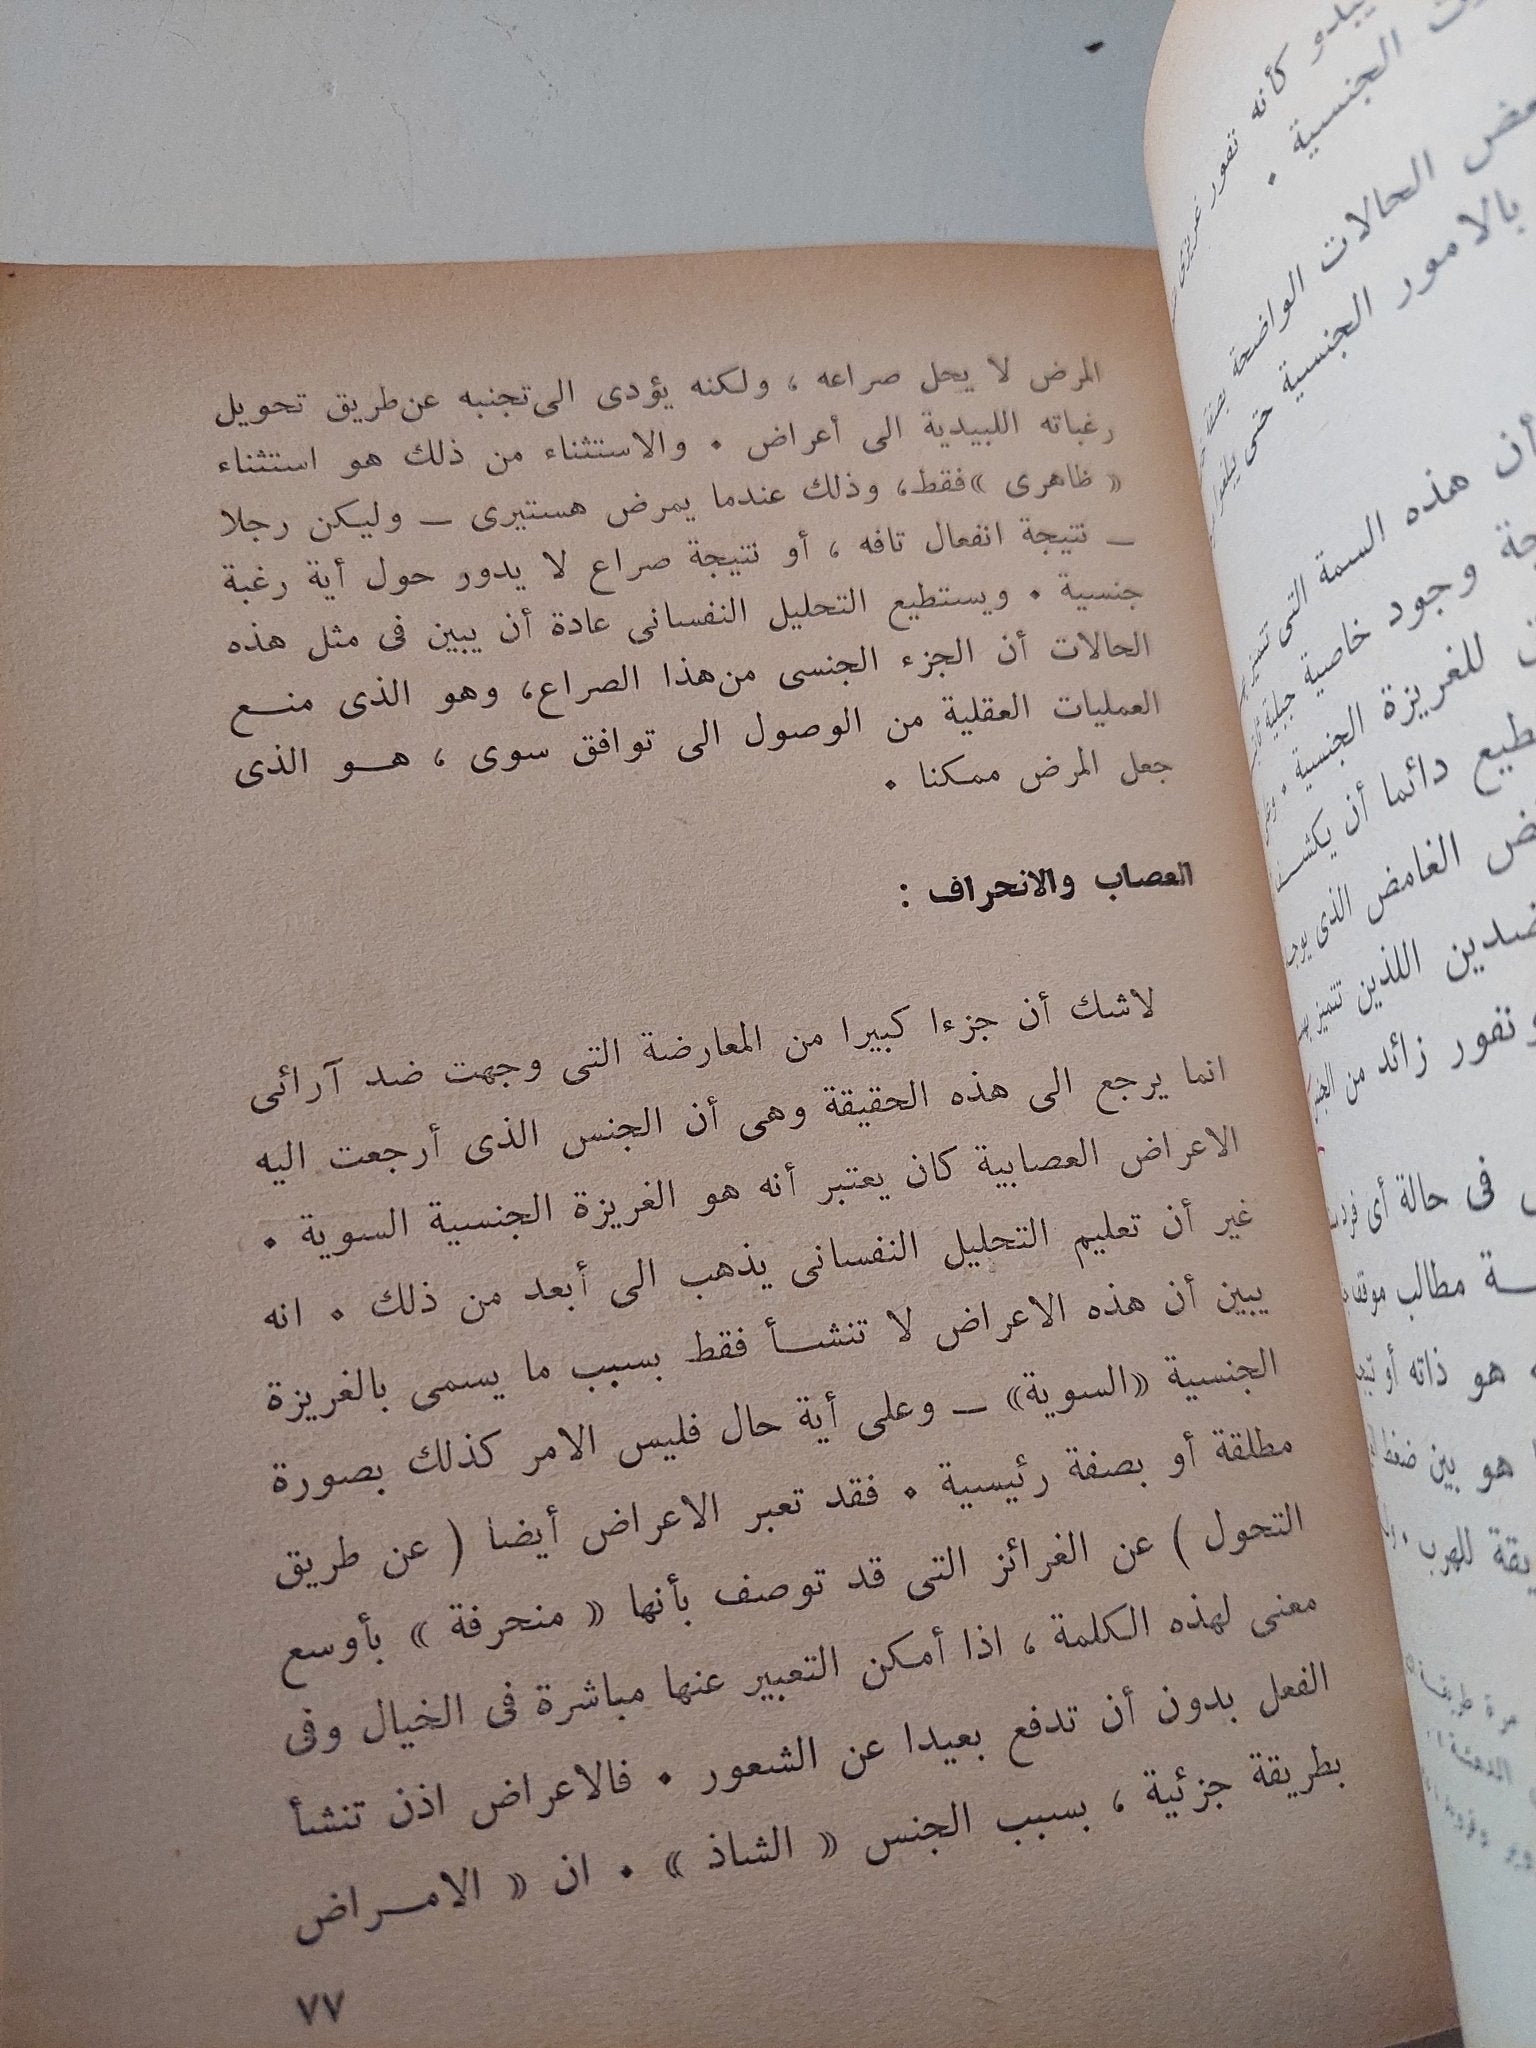 المرض لا يحل صراعه ، ولكنه يؤدى الى تجنبه عن طريق تحويل
رغباته اللبيدية الى أعراض . والاستثناء من ذلك هو استثناء
« ظاهرى » فقط، وذلك عندما يمرض هستيرى — وليكن رجلا
— نتيجة انفعال تافه ، أو نتيجة صراع لا يدور حول أية رغبة
جنسية . ويستطيع التحليل النفسانى عادة أن يبين فى مثل هذه
الحالات أن الجزء الجنسى من هذا الصراع، وهو الذى منع
العمليات العقلية من الوصول الى توافق سوى ، هو الذى
جعل المرض ممكنا .
العصاب والانحراف :
لاشك أن جزءا كبيرا من المعارضة التى وجهت ضد آرائى
انما يرجع الى هذه الحقيقة وهى أن الجنس الذى أرجعت اليه
الاعراض العصابية كان يعتبر أنه هو الغريزة الجنسية السوية .
غير أن تعليم التحليل النفسانى يذهب الى أبعد من ذلك . انه
يبين أن هذه الاعراض لا تنشأ فقط بسبب ما يسمى بالغريزة
الجنسية «السوية» — وعلى أية حال فليس الامر كذلك بصورة
مطلقة أو بصفة رئيسية . فقد تعبر الاعراض أيضا ( عن طريق
التحول ) عن الغرائز التى قد توصف بأنها « منحرفة » بأوسع
معنى لهذه الكلمة ، اذا أمكن التعبير عنها مباشرة فى الخيال وفى
الفعل بدون أن تدفع بعيدا عن الشعور . فالاعراض اذن تنشأ
بطريقة جزئية ، بسبب الجنس « الشاذ » . ان « الامراض
٧٧
يبدو كأنه تفور غريزى
الجنسية .
الحالات الواضحة بصفة
بالامور الجنسية حتى
أن هذه السمة التى
وجود خاصية جبلية
للغريزة الجنسية .
دائما أن يكشف
الغامض الذى
اللذين تتميز
ونفور زائد من
فى حالة أى
مطالب
هو ذاته أو
هو بين ضغط
للهرب .
مرة طريقة